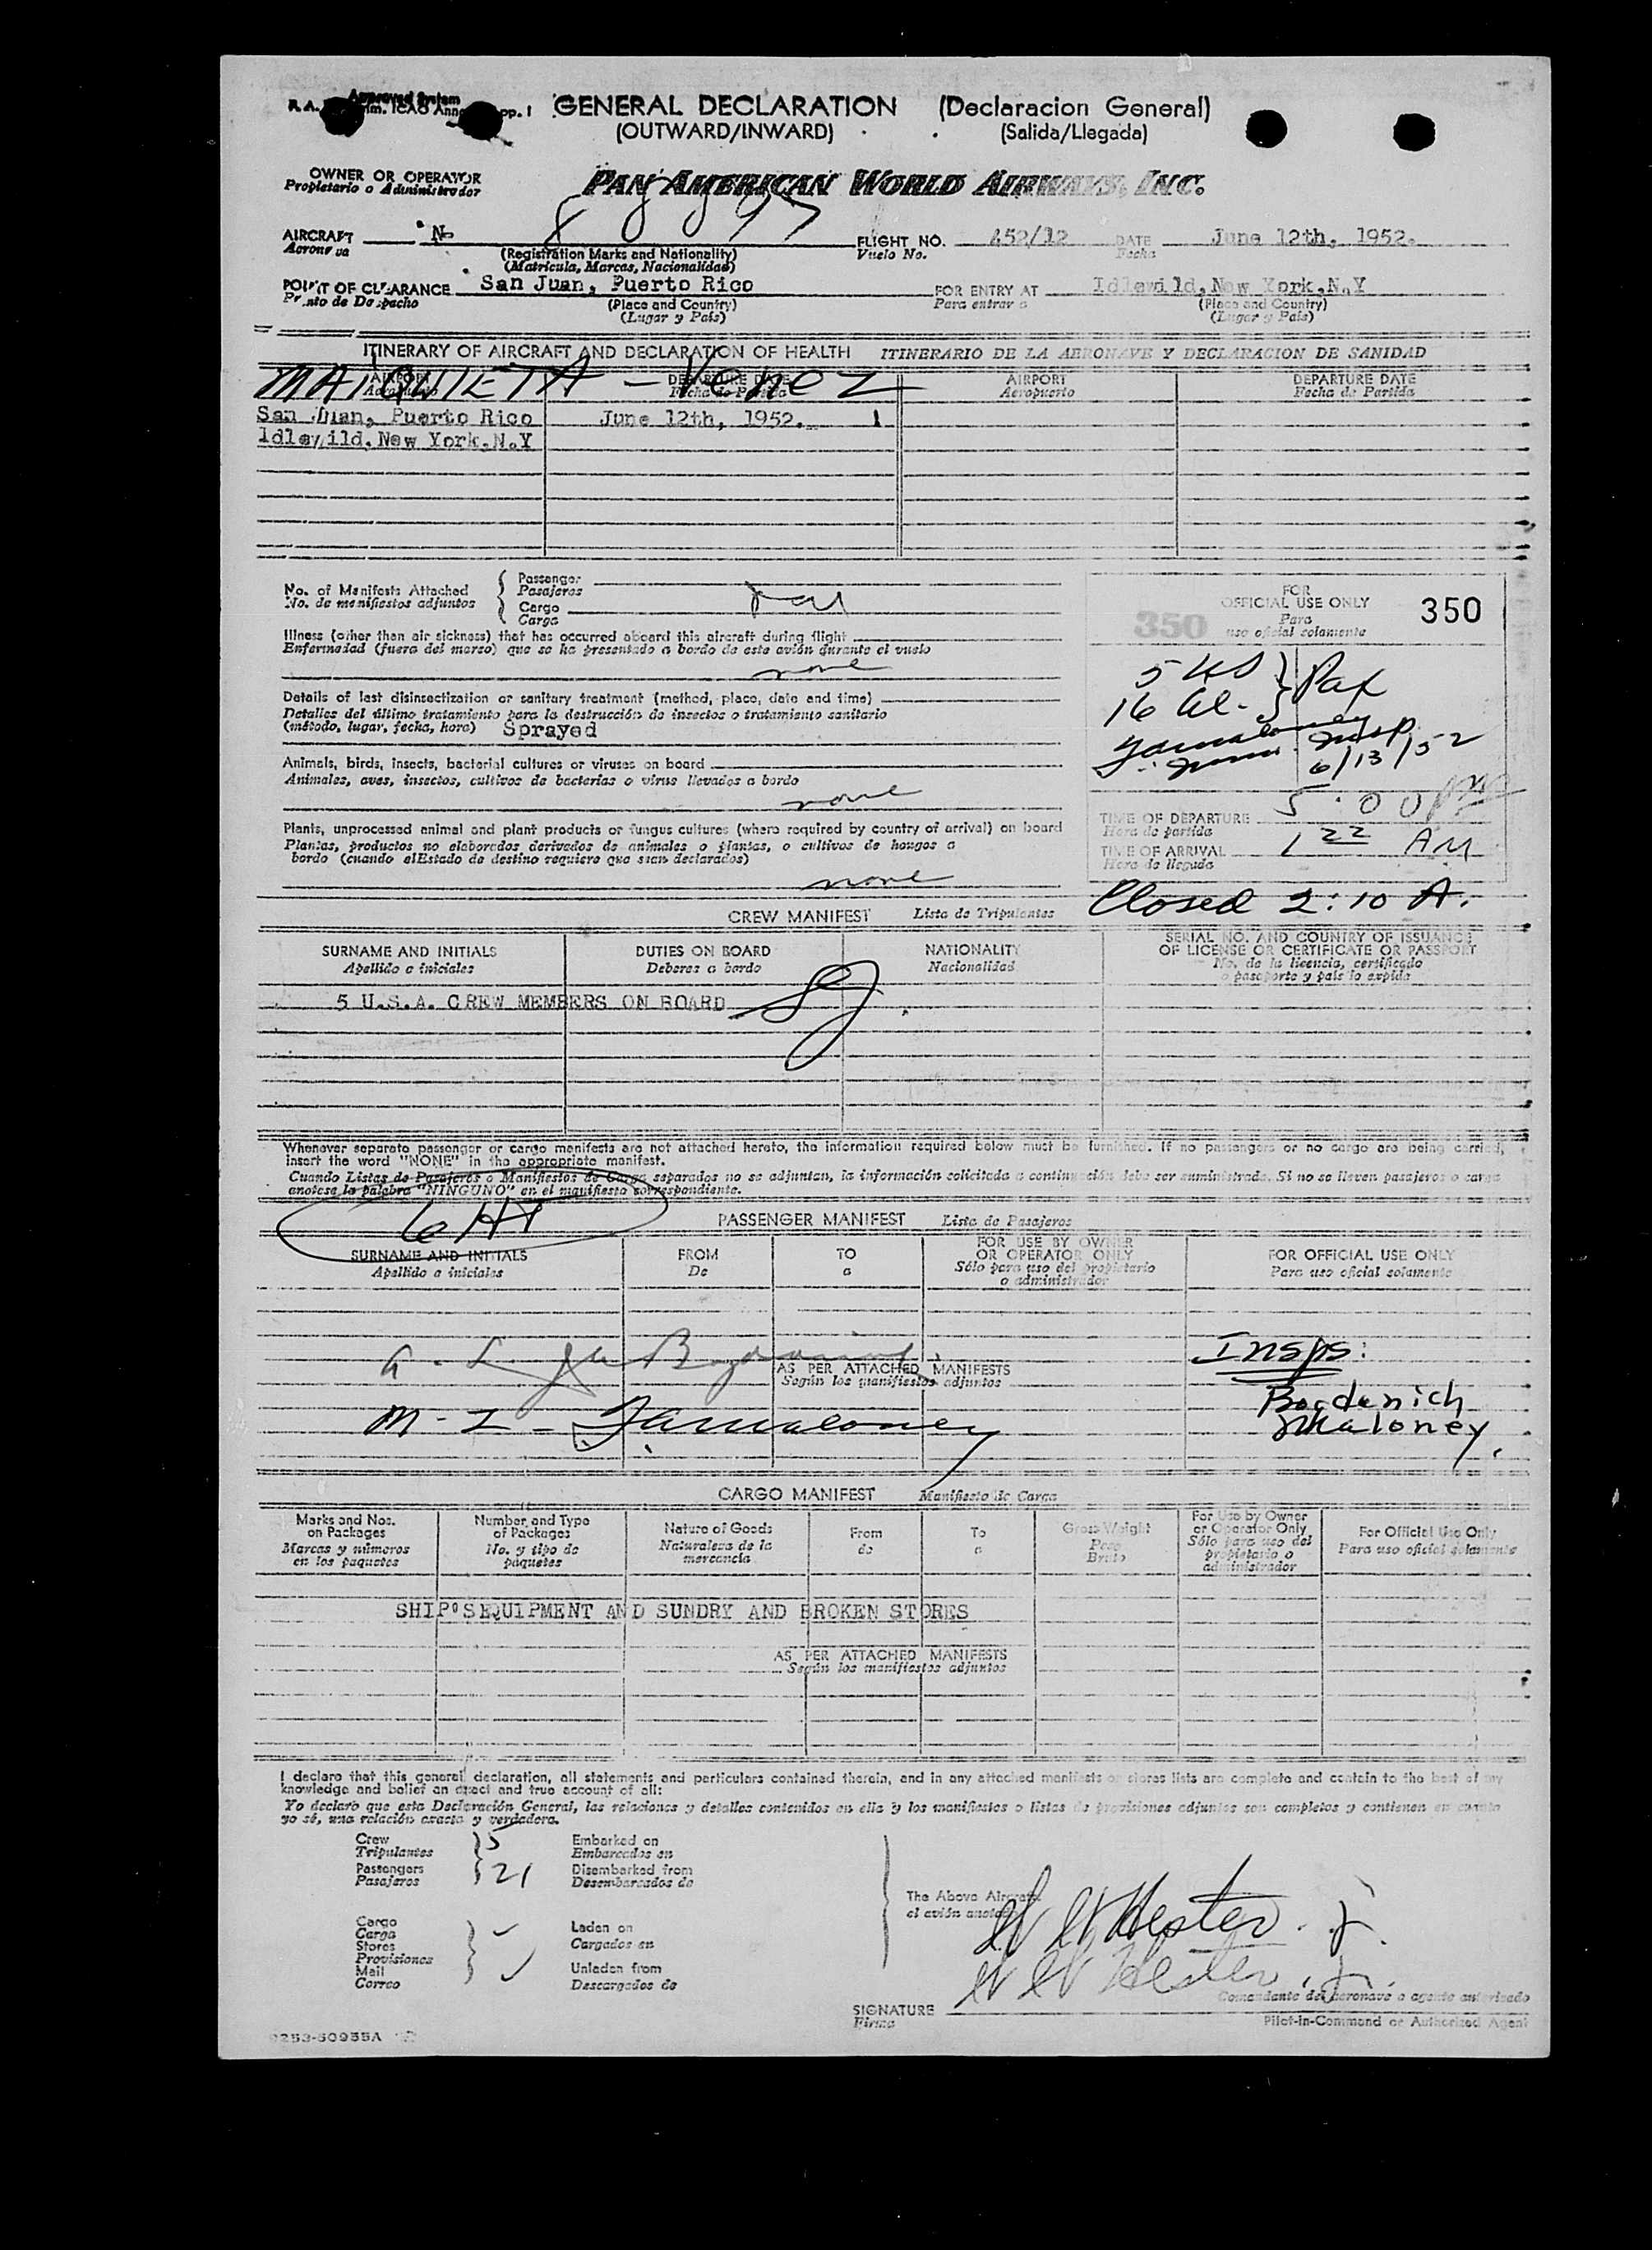 Approved System
GENERAL DECLARATION (Declaracion General)
(OUTWARD/INWARD) (Salida/Llegada)
OWNER OR OPERATOR
Propietario o Administrador
PAN AMERICAN WORLD AIRWAYS, INC.
AIRCRAFT N- FLIGHT NO. 452/12 DATE June 12th, 1952.
Aeronava (Registration Marks and Nationality) Vuelo No. Fecha
(Matricula, Marcas, Nacionalidad)
POINT OF CLEARANCE San Juan, Puerto Rico FOR ENTRY AT Idlewild,New York,N.Y
Punto de Despacho (Place and Country) Para entrar a (Place and Country)
(Lugar y País) (Lugar y País)
ITINERARY OF AIRCRAFT AND DECLARATION OF HEALTH ITINERARIO DE LA AERONAVE Y DECLARACION DE SANIDAD
MAIQUIETA - Venez
AIRPORT DEPARTURE DATE AIRPORT DEPARTURE DATE
Aeropuerto Fecha de Partida Aeropuerto Fecha de Partida
San Juan, Puerto Rico June 12th, 1952.
Idlewild,New York,N.Y
No. of Manifests Attached Passenger
No. de manifiestos adjuntos Pasajeros
Cargo
Carga
FOR
OFFICIAL USE ONLY 350
350 Para
uso oficial solamente
Illness (other than air sickness) that has occurred aboard this aircraft during flight
Enfermedad (fuera del mareo) que se ha presentado a bordo de este avión durante el vuelo
none
Details of last disinsectization or sanitary treatment (method, place, date and time)
Detalles del último tratamiento para la destrucción de insectos o tratamiento sanitario
(método, lugar, fecha, hora) Sprayed
16 al. Pax
Insp
6/13/52
Animals, birds, insects, bacterial cultures or viruses on board
Animales, aves, insectos, cultivos de bacterias o virus llevados a bordo
none
Plants, unprocessed animal and plant products or fungus cultures (where required by country of arrival) on board
Plantas, productos no elaborados derivados de animales o plantas, o cultivos de hongos a
bordo (cuando elEstado de destino requiere que sean declarados)
none
TIME OF DEPARTURE 5:00 PM
Hora de partida
TIME OF ARRIVAL 1 22 AM
Hora de llegada
Closed 2:10 A.
CREW MANIFEST Lista de Tripulantes
SURNAME AND INITIALS DUTIES ON BOARD NATIONALITY SERIAL NO. AND COUNTRY OF ISSUANCE
OF LICENSE OR CERTIFICATE OR PASSPORT
Apellido e iniciales Deberes a bordo Nacionalidad No. de la licencia, certificado
o pasaporte y país lo expide
5 U.S.A. CREW MEMBERS ON BOARD
Whenever separate passenger or cargo manifests are not attached hereto, the information required below must be furnished. If no passengers or no cargo are being carried,
insert the word "NONE" in the appropriate manifest.
Cuando Listas de Pasajeros o Manifiestos de Carga separados no se adjuntan, la información solicitada a continuación debe ser suministrada. Si no se lleven pasajeros o carga
anotese la palabra "NINGUNO" en el manifiesto correspondiente.
PASSENGER MANIFEST Lista de Pasajeros
SURNAME AND INITIALS FROM TO FOR USE BY OWNER
OR OPERATOR ONLY FOR OFFICIAL USE ONLY
Apellido e iniciales De a Sólo para uso del propietario
o administrador Para uso oficial solamente
AS PER ATTACHED MANIFESTS
Según los manifiestos adjuntos
Insps:
Bogdanich
Maloney.
CARGO MANIFEST Manifiesto de Carga
Marks and Nos.
on Packages
Marcas y números
en los paquetes
Number and Type
of Packages
No. y tipo de
paquetes
Nature of Goods
Naturaleza de la
mercancia
From
de
To
a
Gross Weight
Peso
Bruto
For Use by Owner
or Operator Only
Sólo para uso del
propietario o
administrador
For Official Use Only
Para uso oficial solamente
SHIP'S EQUIPMENT AND SUNDRY AND BROKEN STORES
AS PER ATTACHED MANIFESTS
Según los manifiestos adjuntos
I declare that this general declaration, all statements and particulars contained therein, and in any attached manifests or stores lists are complete and contain to the best of my
knowledge and belief an exact and true account of all:
Yo declaro que esta Declaración General, las relaciones y detalles contenidos en ella y los manifiestos o listas de provisiones adjuntos son completos y contienen en cuanto
yo sé, una relación exacta y verdadera.
Crew 5 Embarked on
Tripulantes Embarcados en
Passengers 21 Disembarked from
Pasajeros Desembarcados de
The Above Aircraft
el avión anotado
Cargo
Carga Laden on
Stores Cargados en
Provisiones
Mail Unladen from
Correo Descargados de
W W Hester Jr.
W W Hester, Jr.
Comandante del aeronave o agente autorizado
SIGNATURE
Firma
Pilot-in-Command or Authorized Agent
9253-50955A